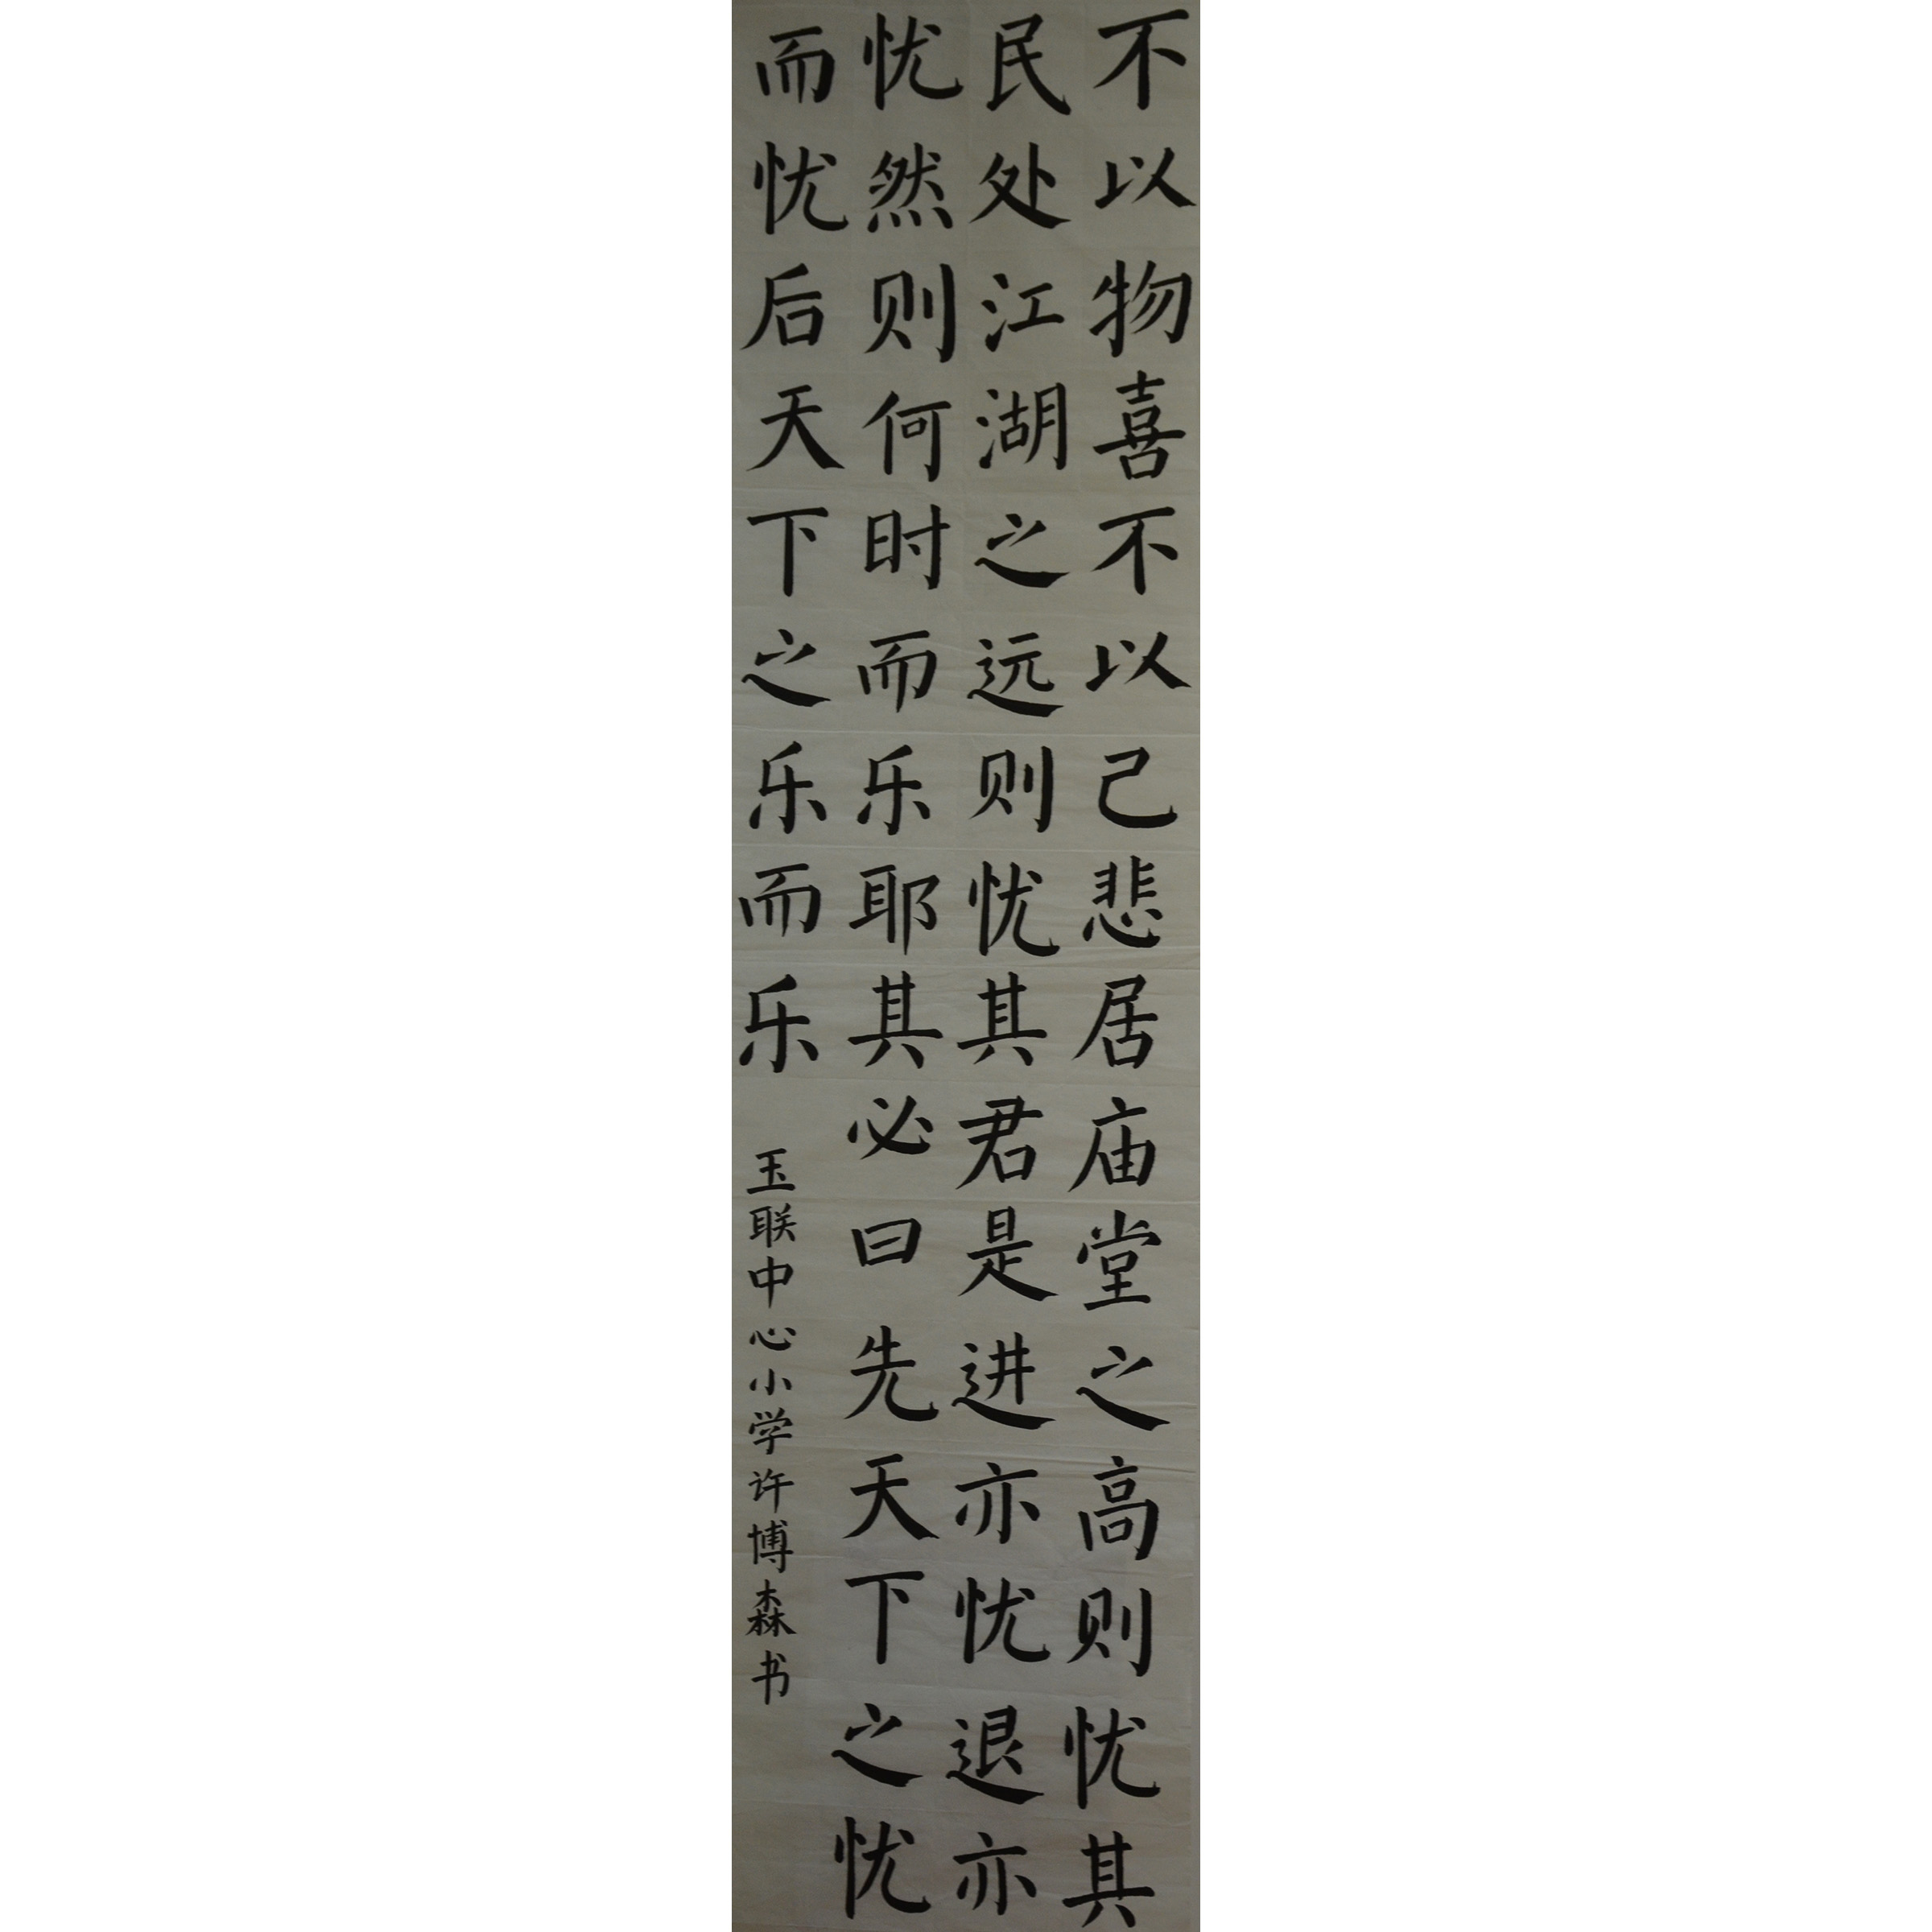 不以物喜不以己悲居庙堂之高则忧其
民处江湖之远则忧其君是进亦忧退亦
忧然则何时而乐耶其必曰先天下之忧
而忧后天下之乐而乐
玉联中心小学许博森书